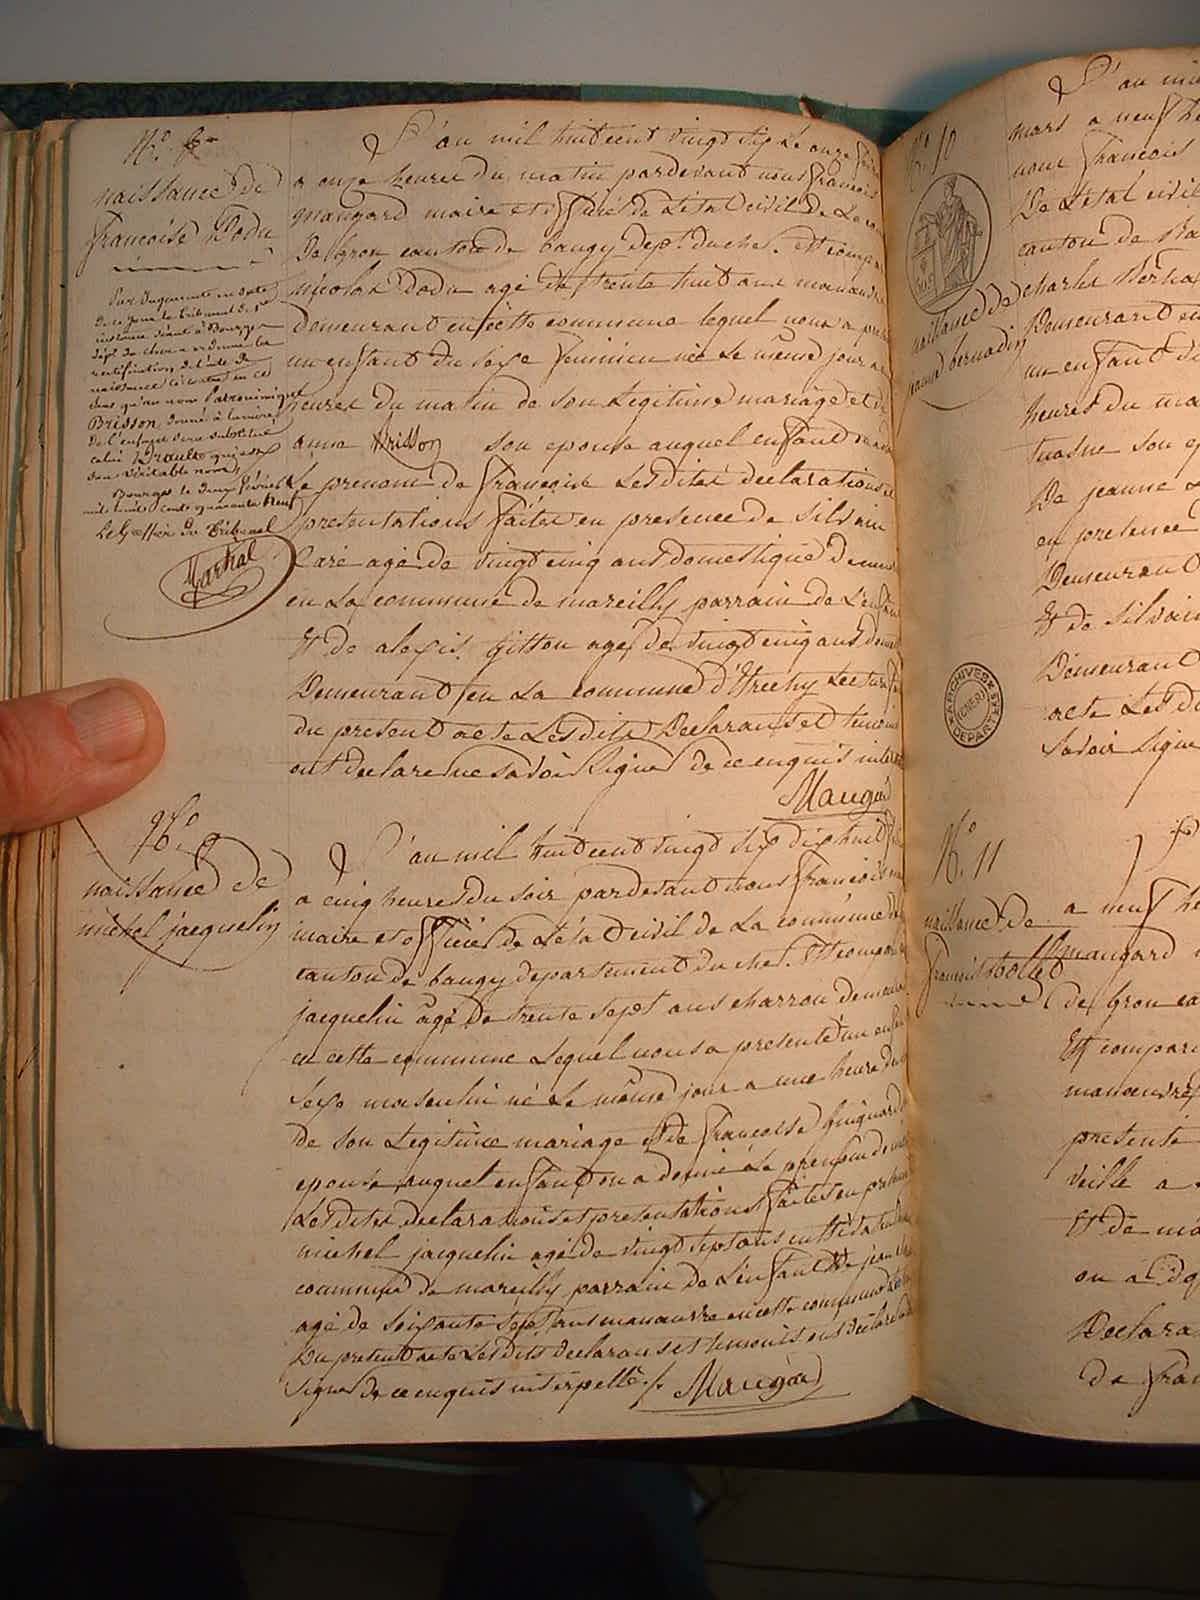 N.° 8
naissance de
françoise Dodu
Par Jugement en date
de ce jour le Tribunal de 1re
instance séant à Bourges
dépt du cher a ordonné la
rectification de l'acte de
naissance ci contre en ce
sens qu'au nom Patronimique
Brisson donné à la mère
de l'enfant sera substitué
celui Drault qui est
son véritable nom
Bourges le deux février
mil huit cent quarante neuf
Le Greffier du Tribunal
Martial
L'an mil huit cent vingt six Le onze
a onze heures du matin pardevant nous françois
maugard maire et officier de L'état civil de La
De Gron canton de baugy dept. du cher. Est comp
nicolas Dodu agé de trente huit ans manœuvre
Demeurant en cette commune lequel nous a
un enfant du sexe feminin né Le même jour a
heures du matin de son Légitime mariage et de
anne Brisson son epouse auquel enfant
Le prenom de françoise Lesdites declarations et
presentations faites en presence de silvain
Caré agé de vingt cinq ans domestique
en La commune de mareilly parrain de L'enfant
Et de alexis Gitton agé de vingt cinq ans
Demeurant en La commune d'Etrechy Lecture
du present acte Lesdits Declarans et temoins
ont declaré ne savoir signer de ce enquis
Maugard
N.° 9
naissance de
michel jacquelin
L'an mil huit cent vingt six Dix huit
a cinq heures du soir pardevant nous françois
maire et officier de L'état civil de La commune de
canton de baugy departement du cher. Est comparu
jacquelin agé de trente sept ans charron demeurant
en cette commune Lequel nous a presenté un enfant
sexe masculin né Le même jour a une heure du
de son Legitime mariage et de françoise
epouse auquel enfant on a donné Le prenom de
Lesdites declarations et presentations faites en presence
michel jacquelin agé de vingt sept ans cultivateur
commune de mareilly parrain de L'enfant Et de jean
agé de soixante sept ans manœuvre en cette commune
Du present acte Lesdits declarans et temoins ont déclaré
signer de ce enquis interpellé ./. Maugard
N.° 10
naissance de
jeanne bernadin
L'an mil
mars a neuf
nous françois
De L'état civil
canton de Ba
charles Berna
Demeurant en
un enfant d
heures du ma
son ep
De jeanne
en presence
Demeurant
Et de silvain
Demeurant
acte Les d
savoir signe
ARCHIVES
(CHER)
DEPART
N.° 11
naissance de
françois
a neuf he
maugard
de Gron ca
Est compar
manœuvre
presenté
veille a
Et de ma
on a d
Declara
de fran